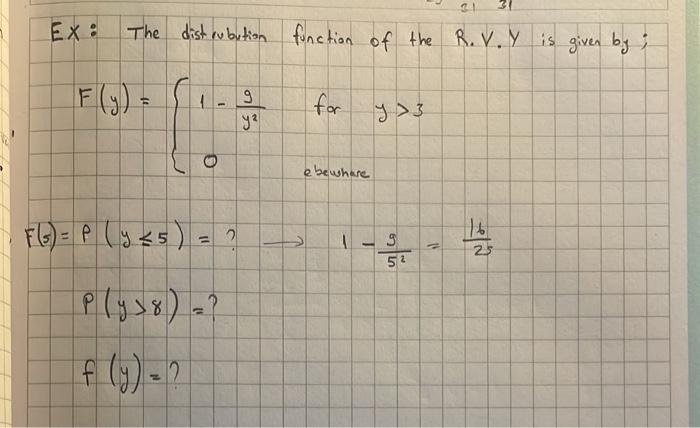 21 31
EX: The distrubution function of the R.V. Y is given by;
F(y) = { 1 - 9/y² for y>3
0 ebewhare
F(5) = P(y≤5) = ? → 1 - 9/5² = 16/25
P(y>8) = ?
f(y) = ?